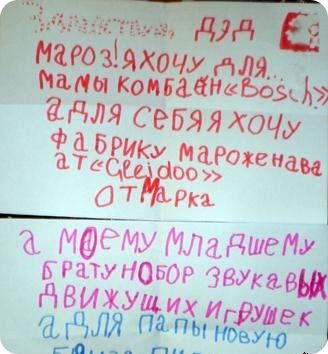 Здраствуй, ДЭД
МАРОЗ! Я ХОЧУ ДЛЯ...
МАМЫ КОМБАЙН «BOSCH»
А ДЛЯ СЕБЯ Я ХОЧУ
ФАБРИКУ МАРОЖЕНАВА
АТ «Gleidoo»
ОТ МАРКА
А МОЕМУ МЛАДШЕМУ
БРАТУ НОБОР ЗВУКАВЫХ
ДВИЖУЩИХ ИГРУШЕК
А ДЛЯ ПАПЫ НОВУЮ